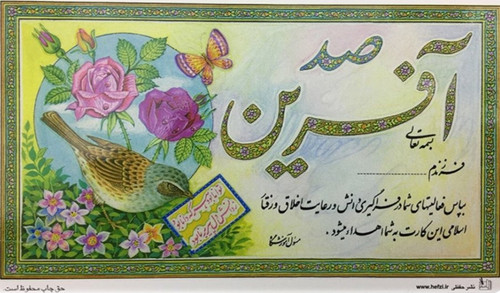 صد
آفرین
بسمه تعالی
فرزندم ..............
بپاس فعالیتهای شما در فراگیری دانش و رعایت اخلاق و رفتار
اسلامی این کارت به شما اهداء میشود .
مسئول آموزشگاه
حق چاپ محفوظ است
نشر حفظی www.hefzi.ir